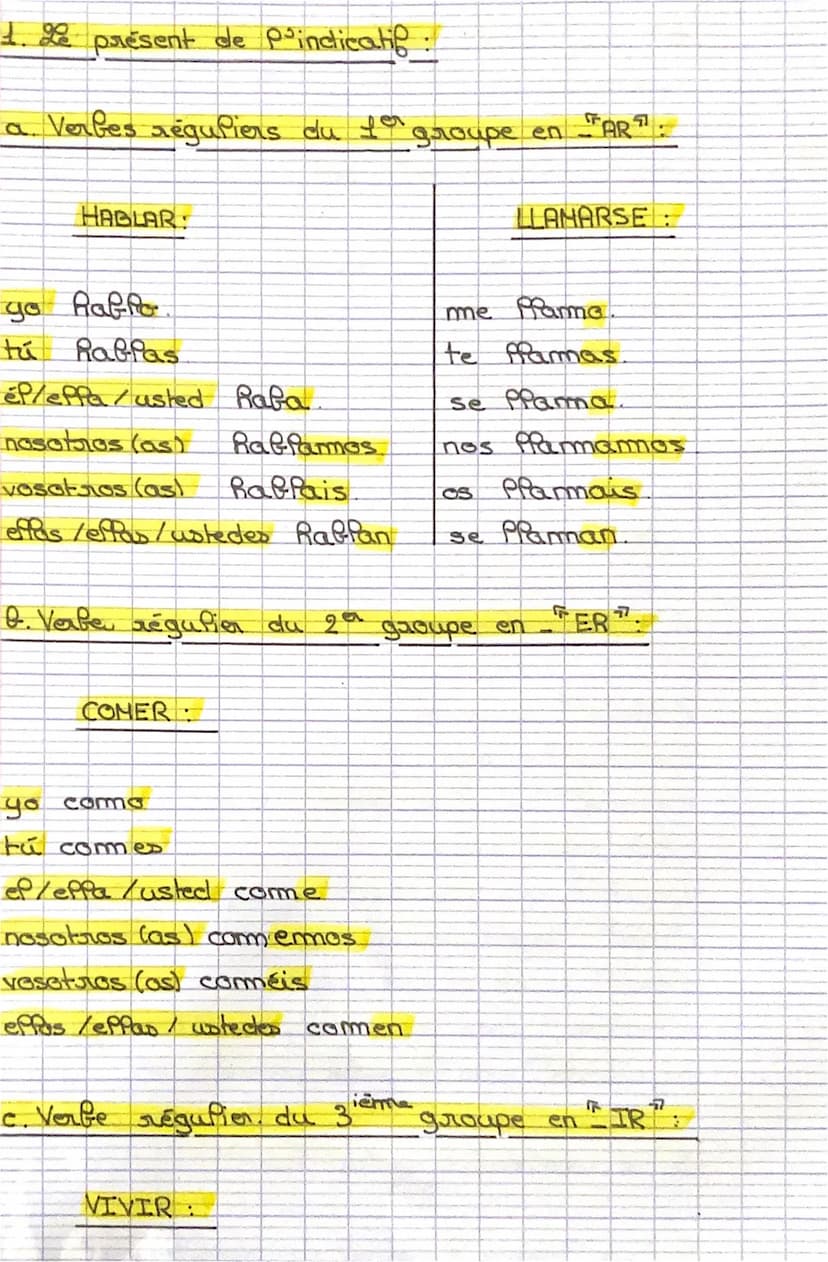 1. Le présent de l'indicatif :
a. Verbes réguliers du 1er groupe en -"AR" :
HABLAR : LLAMARSE :
yo hablo. me llamo.
tú hablas te llamas.
él/ella/usted haba. se llama.
nosotros (as) hablamos. nos llamamos
vosotros (as) hablais. os llamais.
ellos/ellas/ustedes hablan se llaman.
b. Verbe régulier du 2er groupe en -"ER" :
COMER :
yo como
tú comes
el/ella/usted come
nosotros (as) comemos
vosotros (as) coméis
ellos/ellas/ustedes comen
c. Verbe régulier du 3ième groupe en "-IR" :
VIVIR :